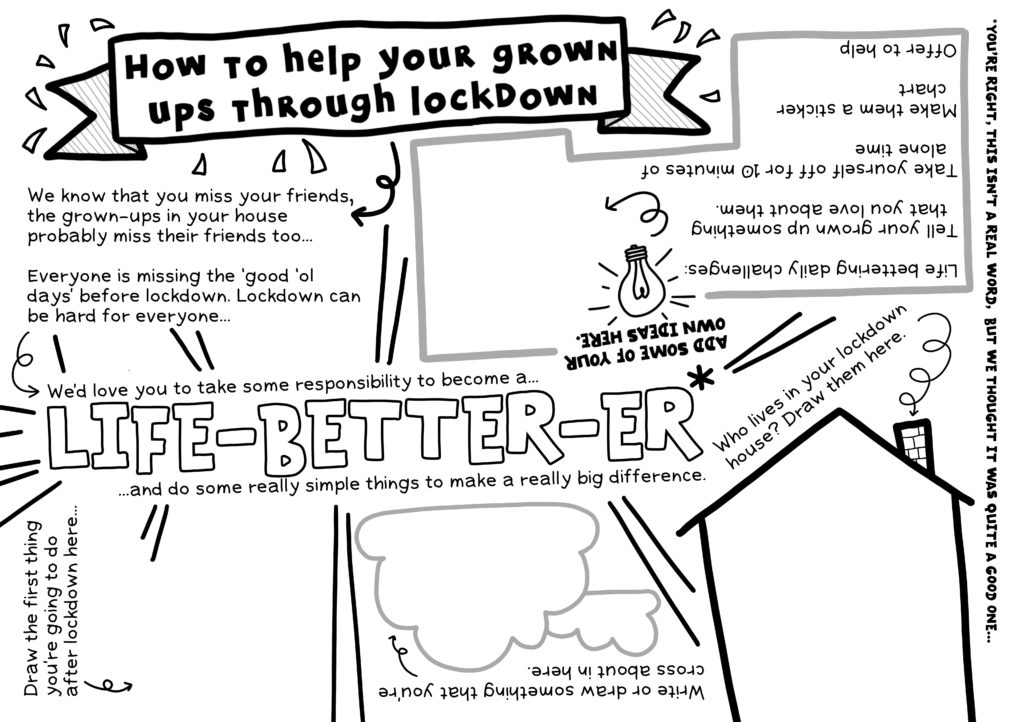 How to help your grown
ups through lockdown
We know that you miss your friends,
the grown-ups in your house
probably miss their friends too...
Everyone is missing the 'good 'ol
days' before lockdown. Lockdown can
be hard for everyone...
We'd love you to take some responsibility to become a...
LIFE-BETTER-ER*
...and do some really simple things to make a really big difference.
Draw the first thing
you're going to do
after lockdown here...
Write or draw something that you're
cross about in here.
Who lives in your lockdown
house? Draw them here.
Life bettering daily challenges:
Tell your grown up something
that you love about them.
Take yourself off for 10 minutes of
alone time
Make them a sticker
chart
Offer to help
ADD SOME OF YOUR
OWN IDEAS HERE.
*YOU'RE RIGHT, THIS ISN'T A REAL WORD, BUT WE THOUGHT IT WAS QUITE A GOOD ONE...